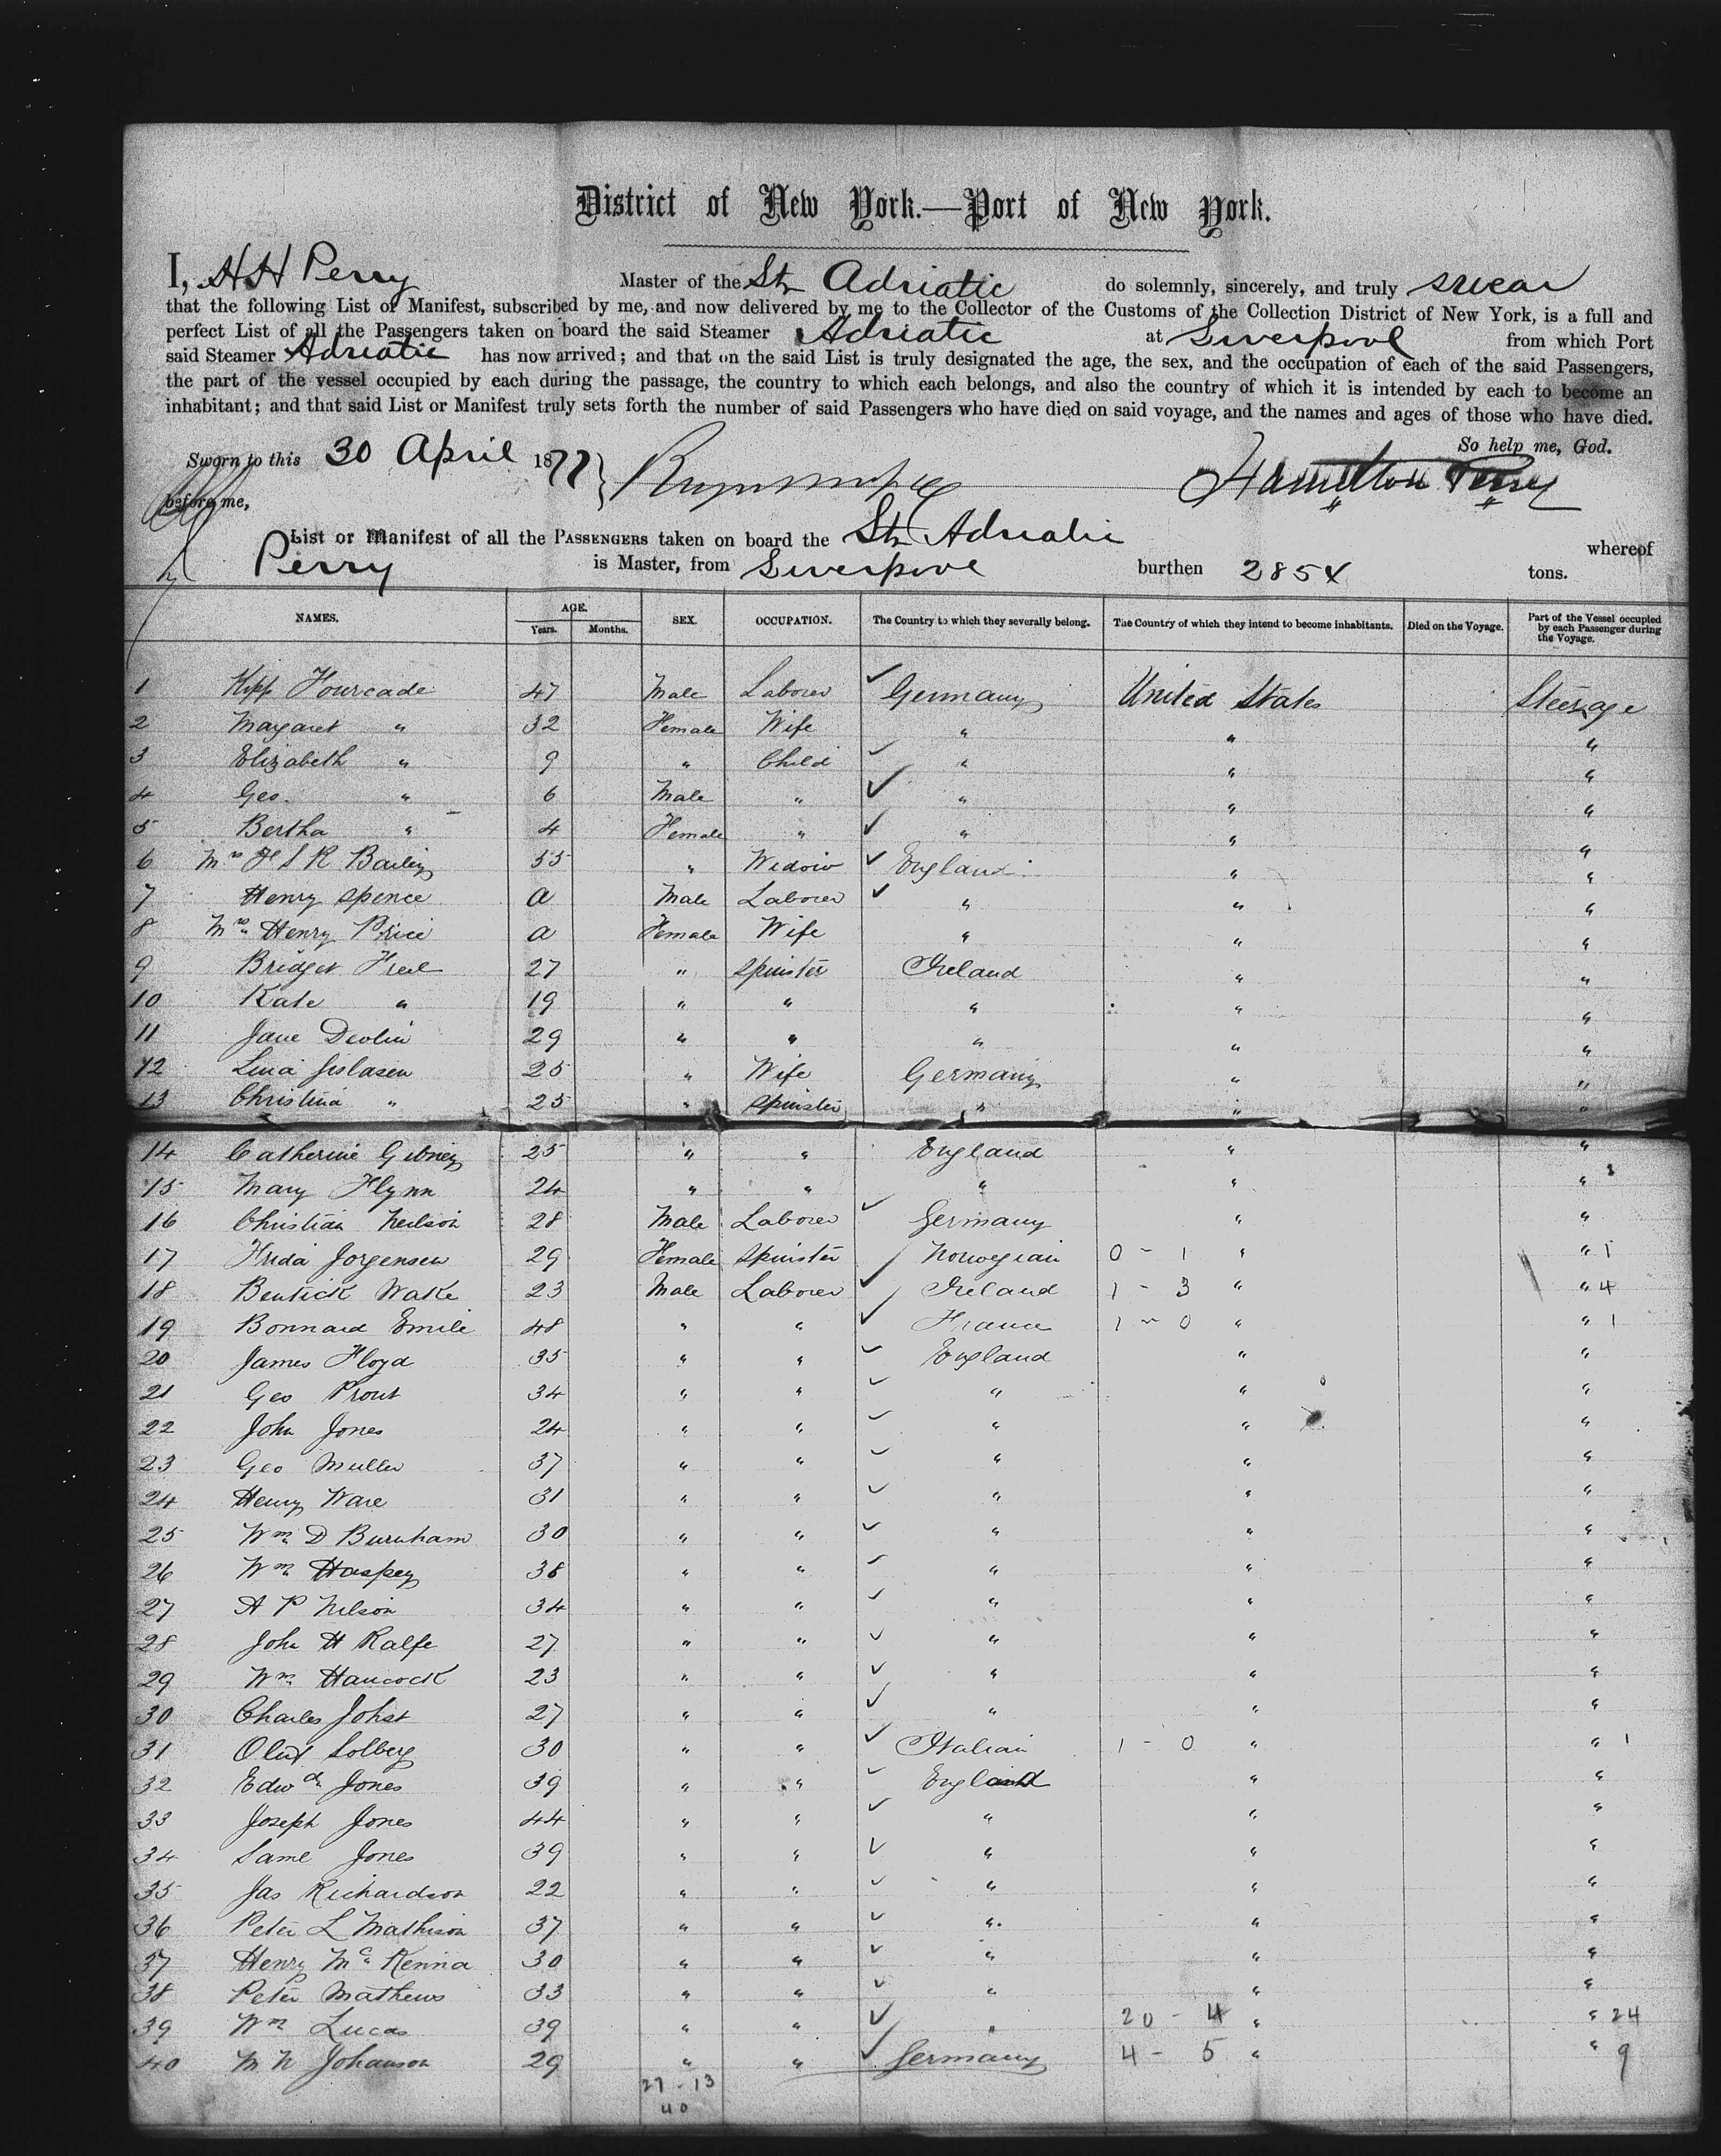 District of New York.—Port of New York.
I, HH Perry Master of the Str Adriatic do solemnly, sincerely, and truly swear
that the following List or Manifest, subscribed by me, and now delivered by me to the Collector of the Customs of the Collection District of New York, is a full and
perfect List of all the Passengers taken on board the said Steamer Adriatic at Liverpool from which Port
said Steamer Adriatic has now arrived; and that on the said List is truly designated the age, the sex, and the occupation of each of the said Passengers,
the part of the vessel occupied by each during the passage, the country to which each belongs, and also the country of which it is intended by each to become an
inhabitant; and that said List or Manifest truly sets forth the number of said Passengers who have died on said voyage, and the names and ages of those who have died.
So help me, God.
Sworn to this 30 April 1877 Hamilton Perry
before me,
List or Manifest of all the PASSENGERS taken on board the Str Adriatic whereof
Perry is Master, from Liverpool burthen 2854 tons.
NAMES. AGE. Years. Months. SEX. OCCUPATION. The Country to which they severally belong. The Country of which they intend to become inhabitants. Died on the Voyage. Part of the Vessel occupied by each Passenger during the Voyage.
1 Kipp Fourcade 47 Male Laborer Germany United States Steerage
2 Margaret " 32 Female Wife " " "
3 Elizabeth " 9 " Child " " "
4 Geo. " 6 Male " " " "
5 Bertha " 4 Female " " " "
6 Mrs H S R Bailey 55 " Widow England " "
7 Henry Spence a Male Laborer " " "
8 Mrs Henry Price a Female Wife " " "
9 Bridget Freel 27 " Spinster Ireland " "
10 Kate " 19 " " " " "
11 Jane Devlin 29 " " " " "
12 Lina 25 " Wife Germany " "
13 Christina " 25 " Spinster " " "
14 Catherine Gibney 25 " " England " "
15 Mary Flynn 24 " " " " "
16 Christian Neilson 28 Male Laborer Germany " "
17 Frida Jorgensen 29 Female Spinster Norwegian 0 - 1 " " 1
18 Bentick Wake 23 Male Laborer Ireland 1 - 3 " " 4
19 Bonnard Emile 48 " " France 1 - 0 " " 1
20 James Floyd 35 " " England " "
21 Geo Prout 34 " " " " "
22 John Jones 24 " " " " "
23 Geo Muller 37 " " " " "
24 Henry Ware 31 " " " " "
25 Wm D Burnham 30 " " " " "
26 Wm Haspey 38 " " " " "
27 A P Nelson 34 " " " " "
28 John H Ralfe 27 " " " " "
29 Wm Hancock 23 " " " " "
30 Charles Johst 27 " " " " "
31 Oluf Solberg 30 " " Italian 1 - 0 " " 1
32 Edwd Jones 39 " " England " "
33 Joseph Jones 44 " " " " "
34 Saml Jones 39 " " " " "
35 Jas Richardson 22 " " " " "
36 Peter L Mathison 37 " " " " "
37 Henry McKenna 30 " " " " "
38 Peter Mathews 33 " " " " "
39 Wm Lucas 39 " " " 20 - 4 " " 24
40 M N Johanson 29 " " Germany 4 - 5 " " 9
27 - 13
40